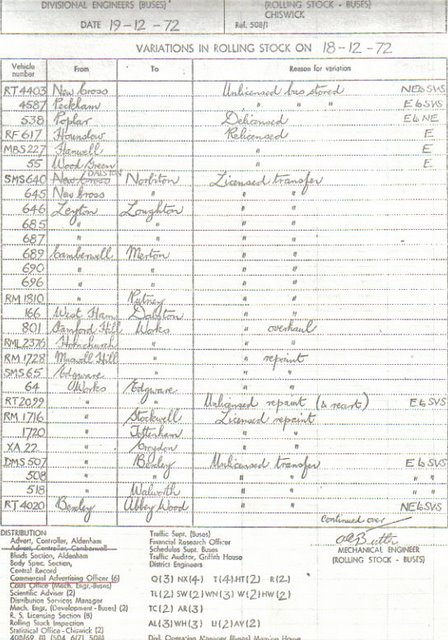 DIVISIONAL ENGINEERS (BUSES) (ROLLING STOCK - BUSES)
CHISWICK
DATE 19-12-72 Ref. 508/1
VARIATIONS IN ROLLING STOCK ON 18-12-72
Vehicle number From To Reason for variation
RT 4403 New Cross Unlicensed bus stored NE6SVS
4587 Peckham " " " E6SVS
538 Poplar Delicensed E6NE
RF 617 Hounslow Relicensed E
MBS 227 Hanwell " E
55 Wood Green " E
SMS 640 New Cross DALSTON Norbiton Licensed transfer
645 New Cross " " "
646 Leyton Loughton " "
685 " " " "
687 " " " "
689 Camberwell Merton " "
690 " " " "
696 " " " "
RM 1810 " Putney " "
166 West Ham Dalston " "
801 Stamford Hill Works " overhaul
RML 2376 Hornchurch " " "
RM 1728 Muswell Hill " " repaint
SMS 65 Edgware " " "
64 Works Edgware " "
RT 2099 " " Unlicensed repaint (& recert) E6SVS
RM 1716 " Stockwell Licensed repaint
1720 " Tottenham " "
XA 22 " Croydon " "
DMS 507 " Bexley Unlicensed transfer E6SVS
508 " " " " " "
518 " Walworth " " " "
RT 4020 Bexley Abbey Wood " " NE6SVS
Continued over
DISTRIBUTION
Advert. Controller, Aldenham
Advert. Controller, Camberwell
Blinds Section, Aldenham
Body Spec. Section,
Central Record
Commercial Advertising Officer (6)
Costs Office (Mech. Engr-Buses)
Scientific Adviser (2)
Distribution Services Manager
Mech. Engr. (Development-Buses) (2)
R. S. Licensing Section (8)
Rolling Stock Inspection
Statistical Office - Chiswick (2)
Traffic Supt. (Buses)
Financial Research Officer
Schedules Supt. Buses
Traffic Auditor, Griffith House
District Engineers
Q(3) NX(4) T(4) HT(2) R(2)
TL(2) SW(2) WN(3) W(2) NW(2)
TC(2) AR(3)
AL(3) WH(3) U(2) AV(2)
MECHANICAL ENGINEER
(ROLLING STOCK - BUSES)